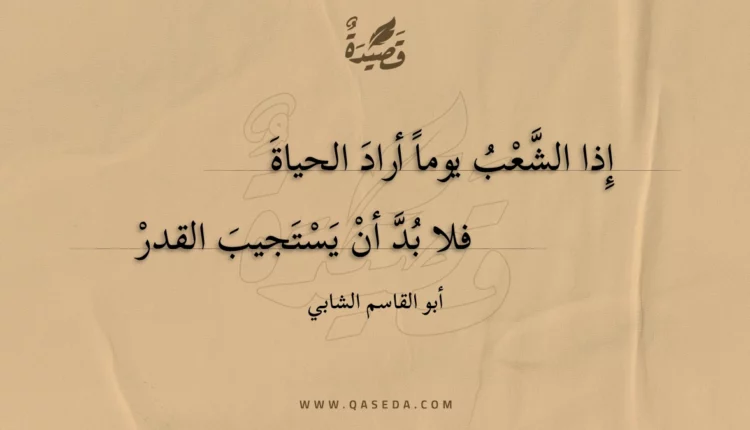 قَصِيْدَةٌ
إِذا الشَّعْبُ يوماً أرادَ الحياةَ
فلا بُدَّ أنْ يَسْتَجيبَ القدرْ
أبو القاسم الشابي
WWW.QASEDA.COM